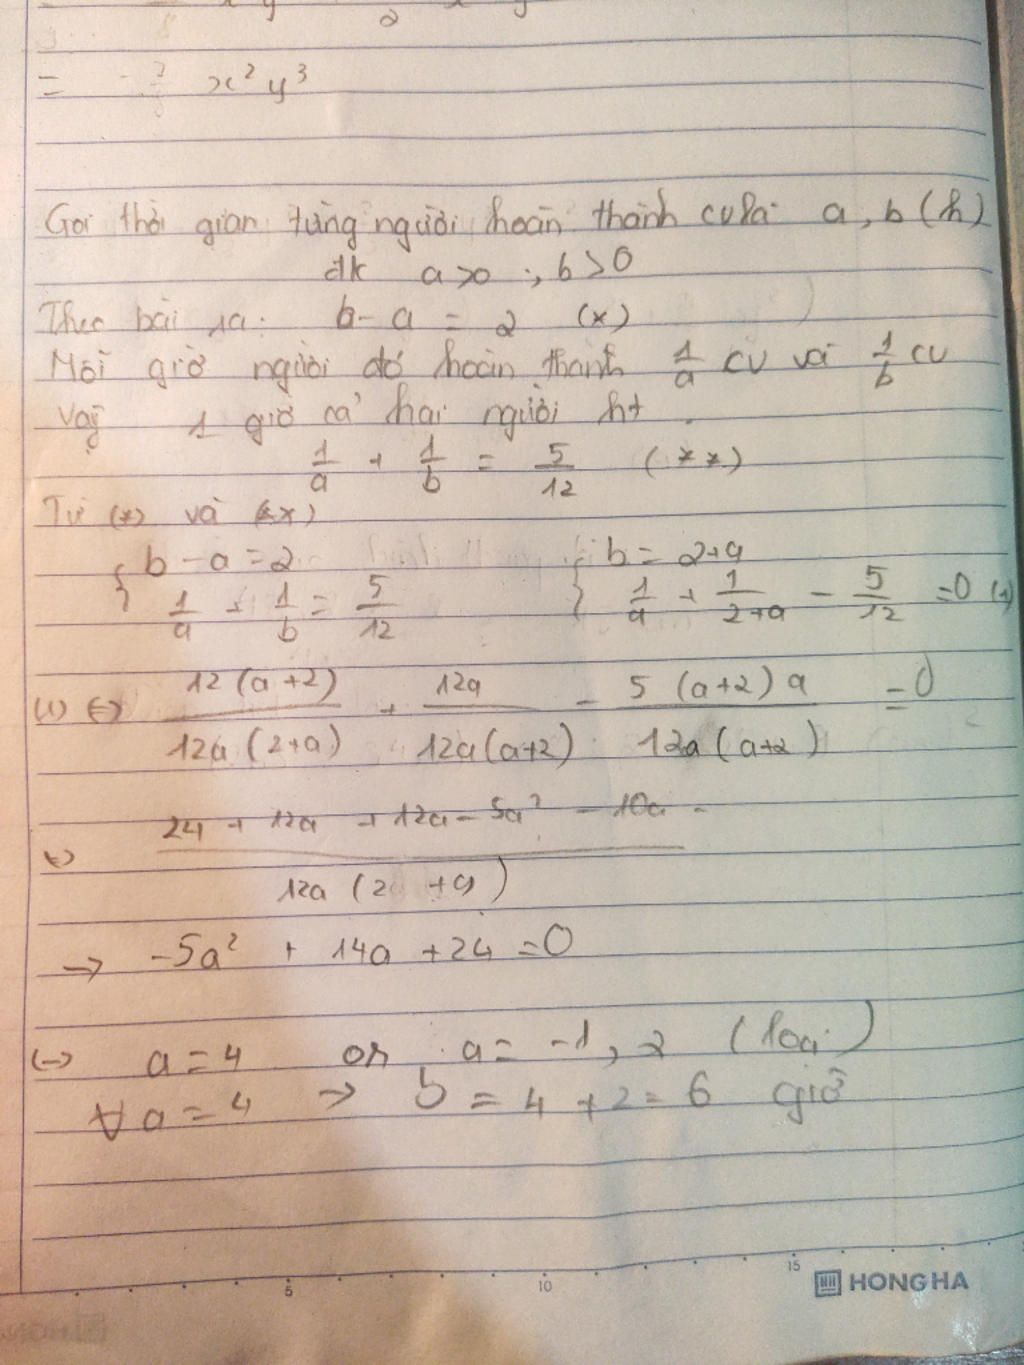 = x² y³
Gọi thời gian từng người hoàn thành cv là a, b (h)
đk a>0 ; b>0
Theo bài ra: b - a = 2 (*)
Mỗi giờ người đó hoàn thành 1/a cv và 1/b cv
Vậy 1 giờ cả hai người ht
1/a + 1/b = 5/12 (**)
Từ (*) và (**)
{ b - a = 2 { b = 2+a
1/a + 1/b = 5/12 1/a + 1/(2+a) - 5/12 = 0 (1)
(1) (=) 12(a+2)/12a(2+a) + 12a/12a(a+2) - 5(a+2)a/12a(a+2) = 0
24 + 12a + 12a - 5a² - 10a
12a (2 + a)
→ -5a² + 14a + 24 = 0
(=) a = 4 or a = -1,2 (loại)
∀ a = 4 → b = 4 + 2 = 6 giờ
5 10 15 HONG HA